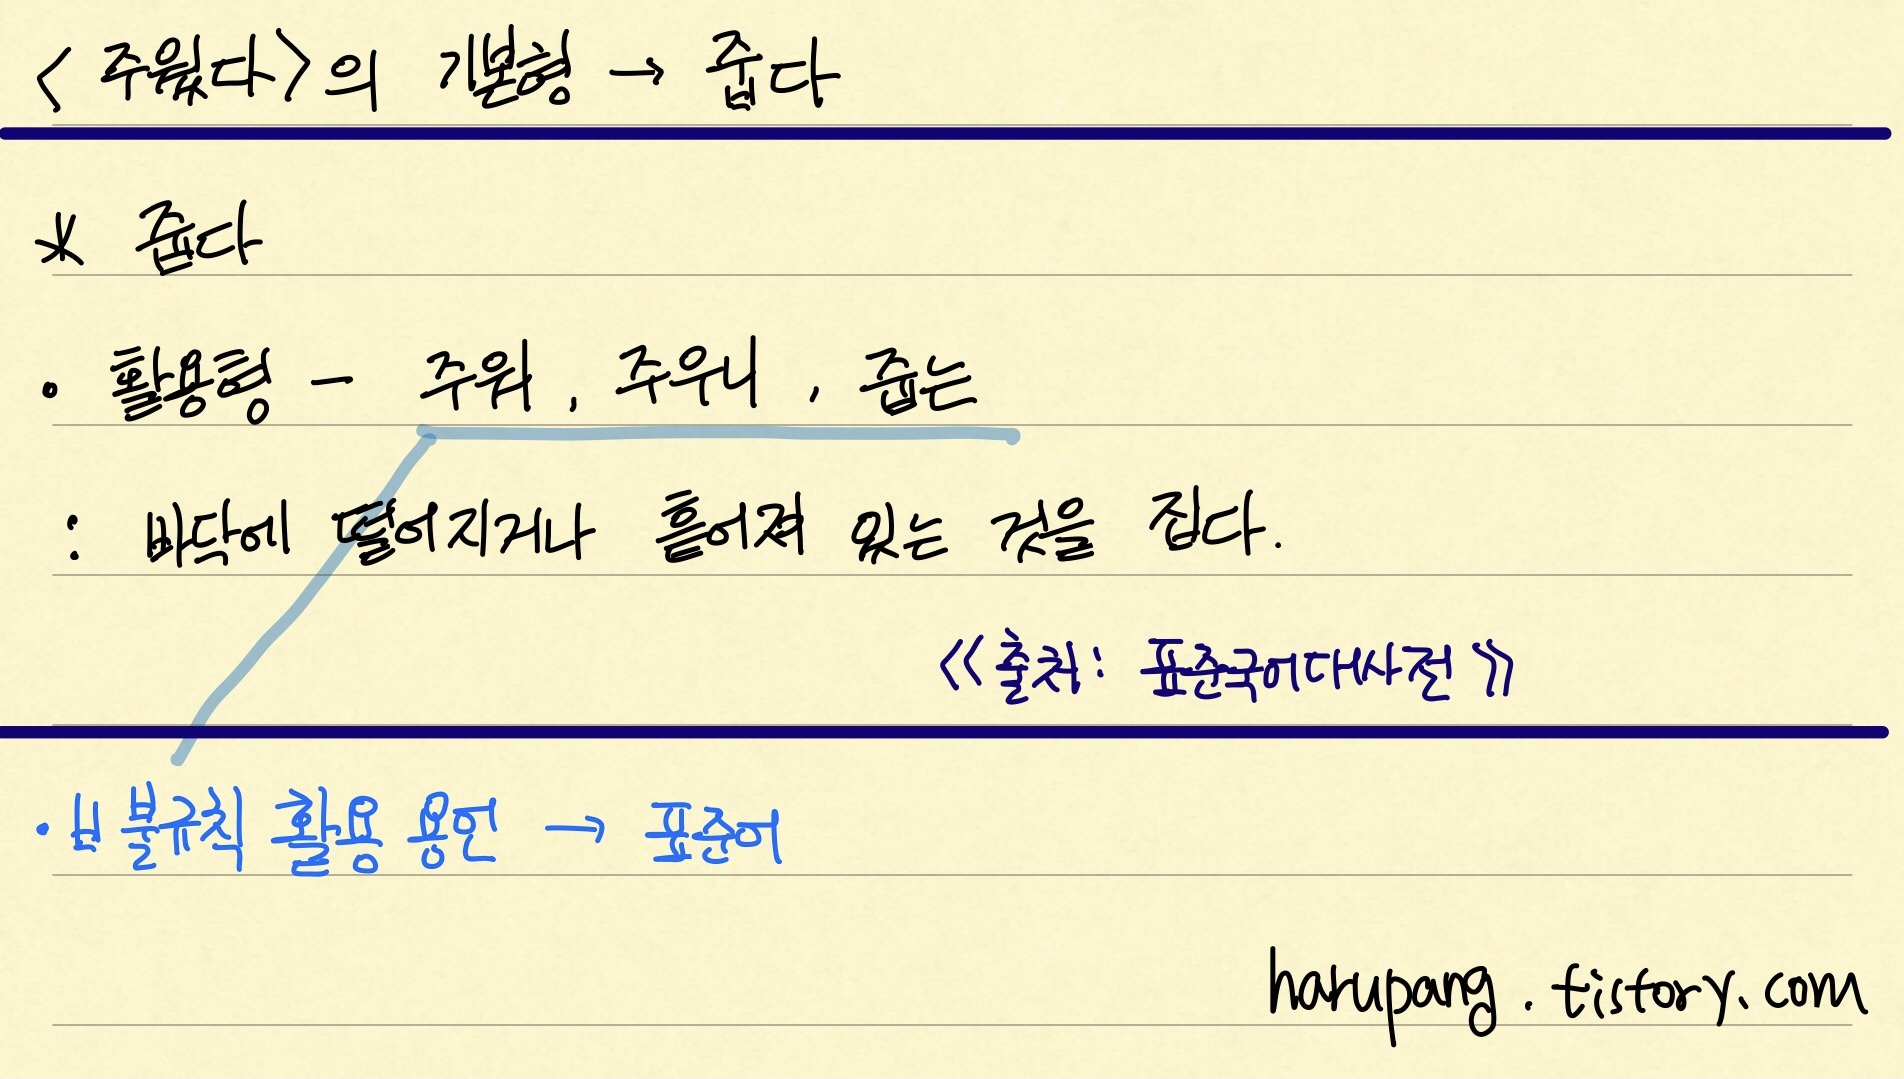 <주웠다>의 기본형 → 줍다
* 줍다
• 활용형 - 주워, 주우니, 줍는
: 바닥에 떨어지거나 흩어져 있는 것을 집다.
<<출처: 표준국어대사전>>
• ㅂ불규칙 활용 용언 → 표준어
harupang.tistory.com